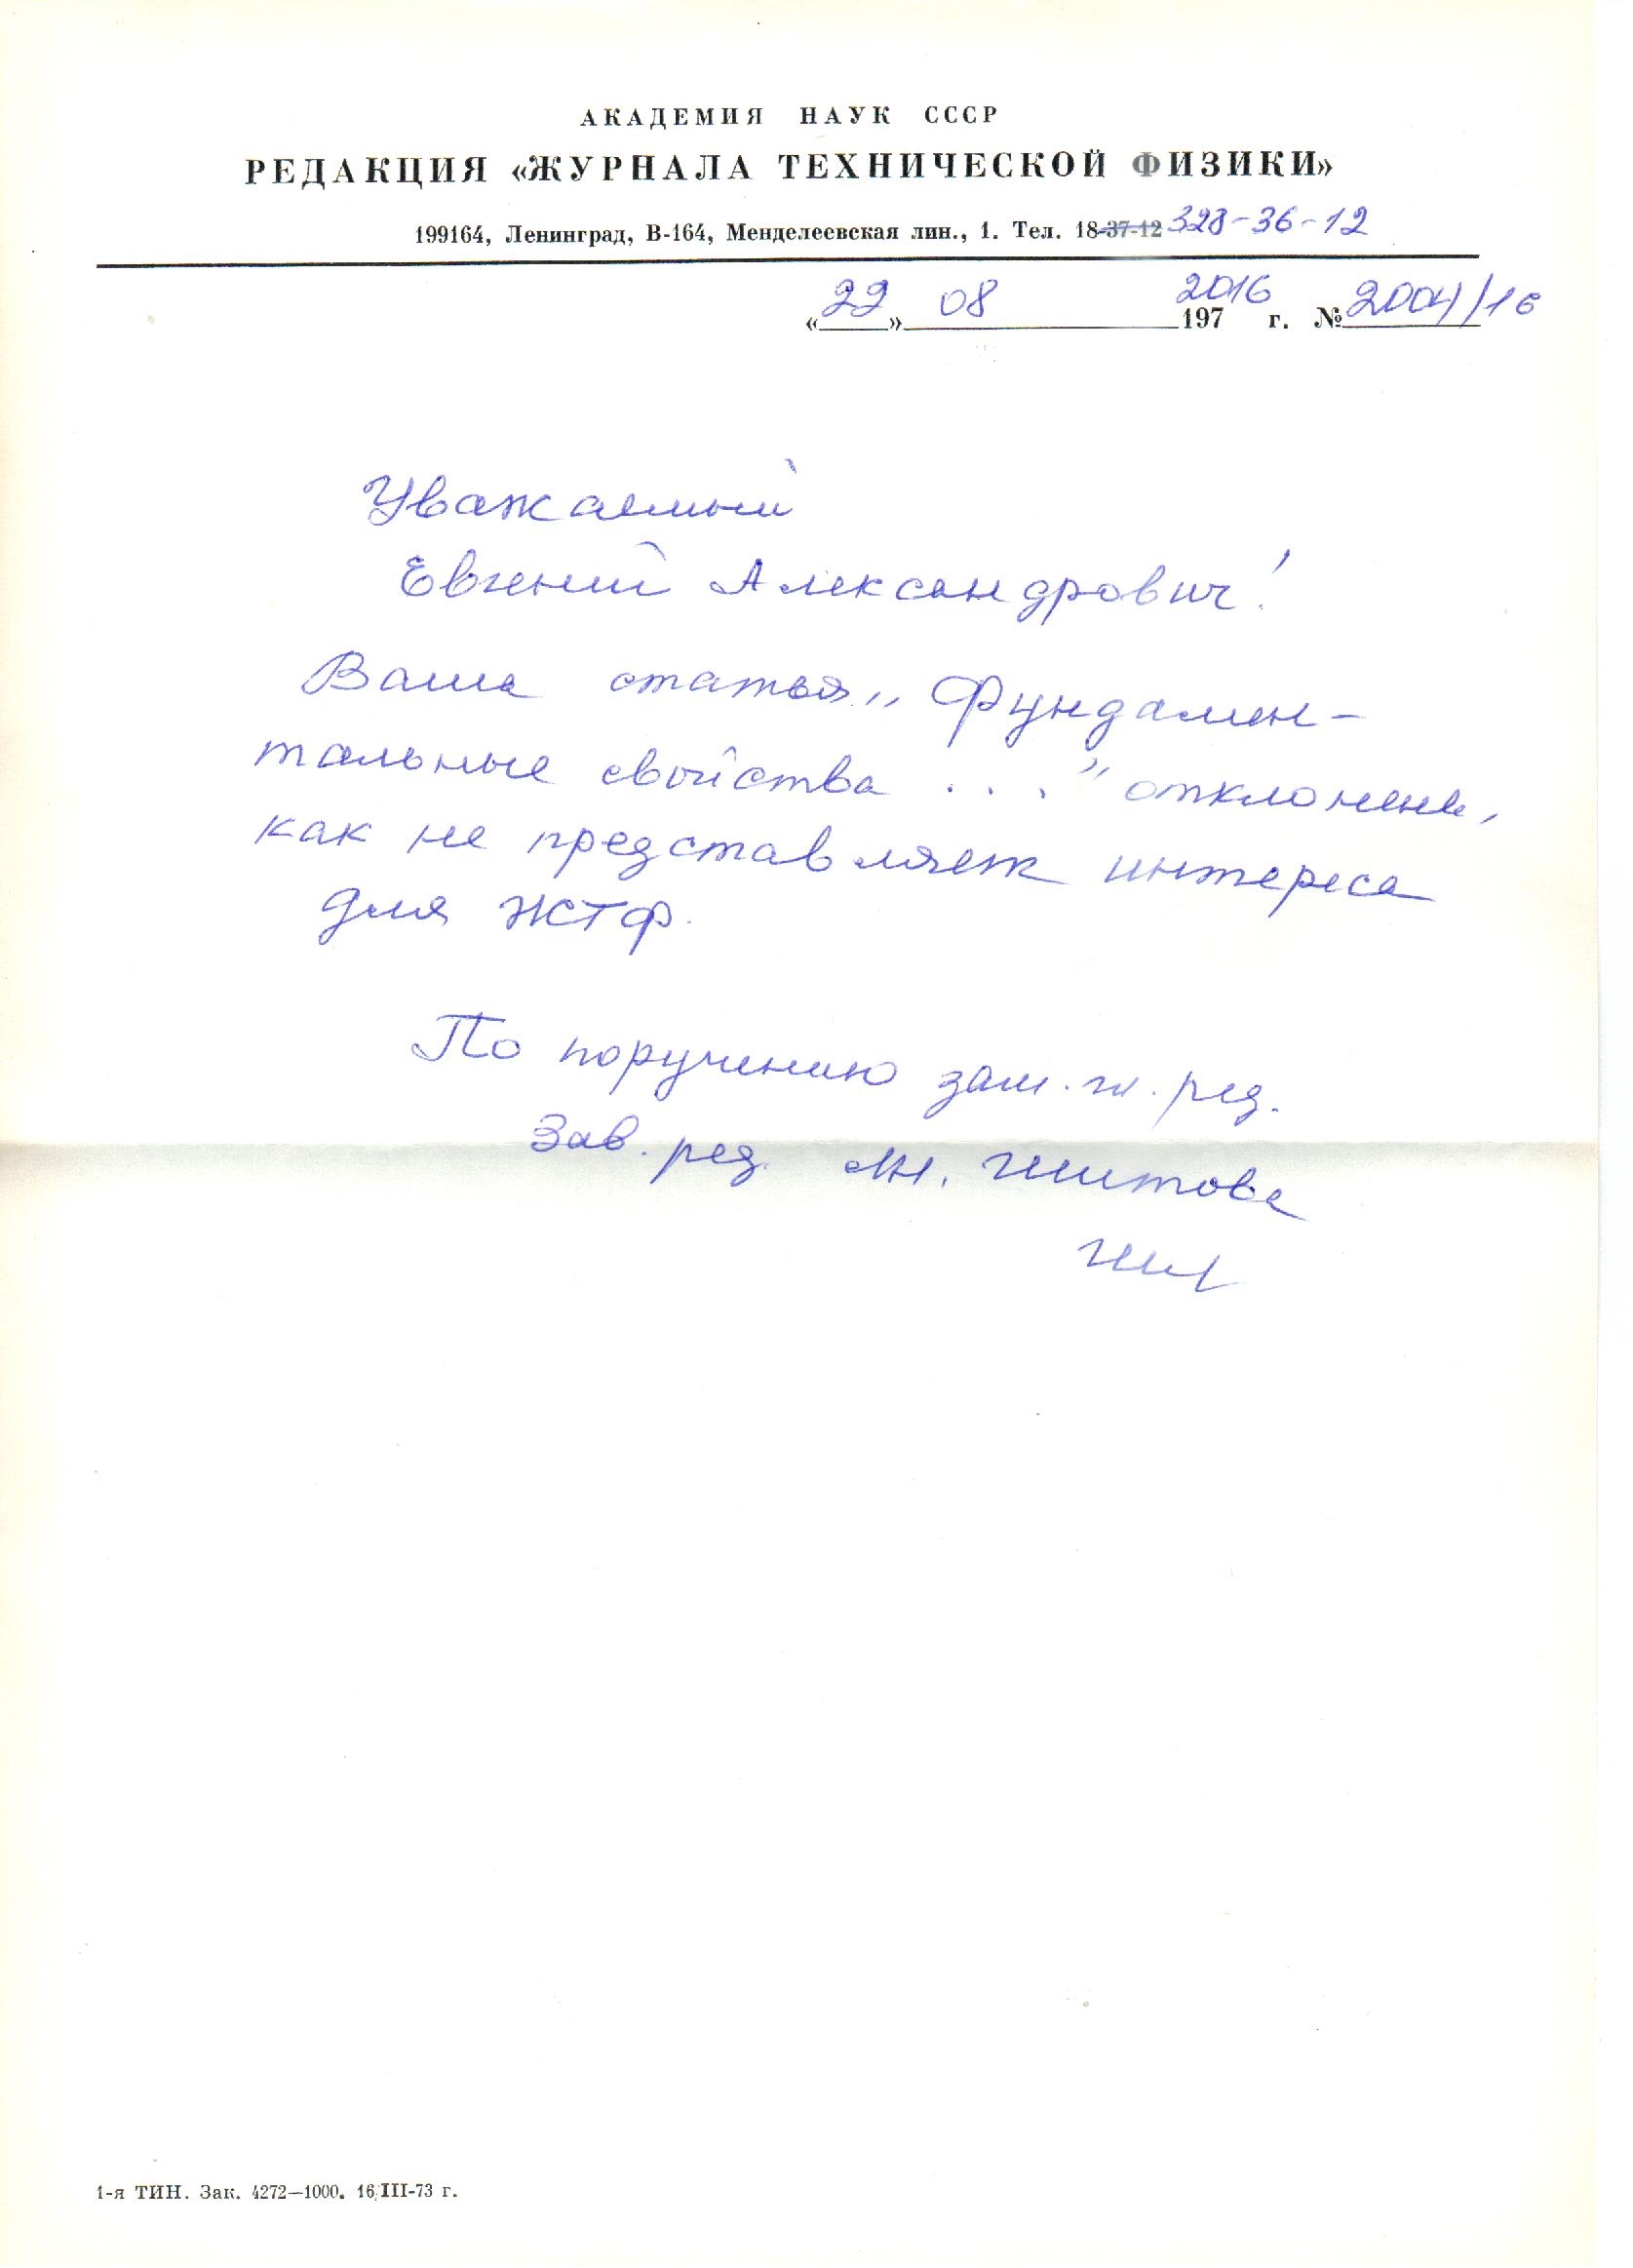 АКАДЕМИЯ НАУК СССР
РЕДАКЦИЯ «ЖУРНАЛА ТЕХНИЧЕСКОЙ ФИЗИКИ»
199164, Ленинград, В-164, Менделеевская лин., 1. Тел. 18-37-12 328-36-12
«22» 08 2016 197 г. № 2004/16
Уважаемый
Евгений Александрович!
Ваша статья „Фундамен-
тальные свойства ...” отклонена,
как не представляет интереса
для ЖТФ.
По поручению зам. гл. ред.
Зав. ред. Шитова
1-я ТИП. Зак. 4272—1000. 16/III-73 г.